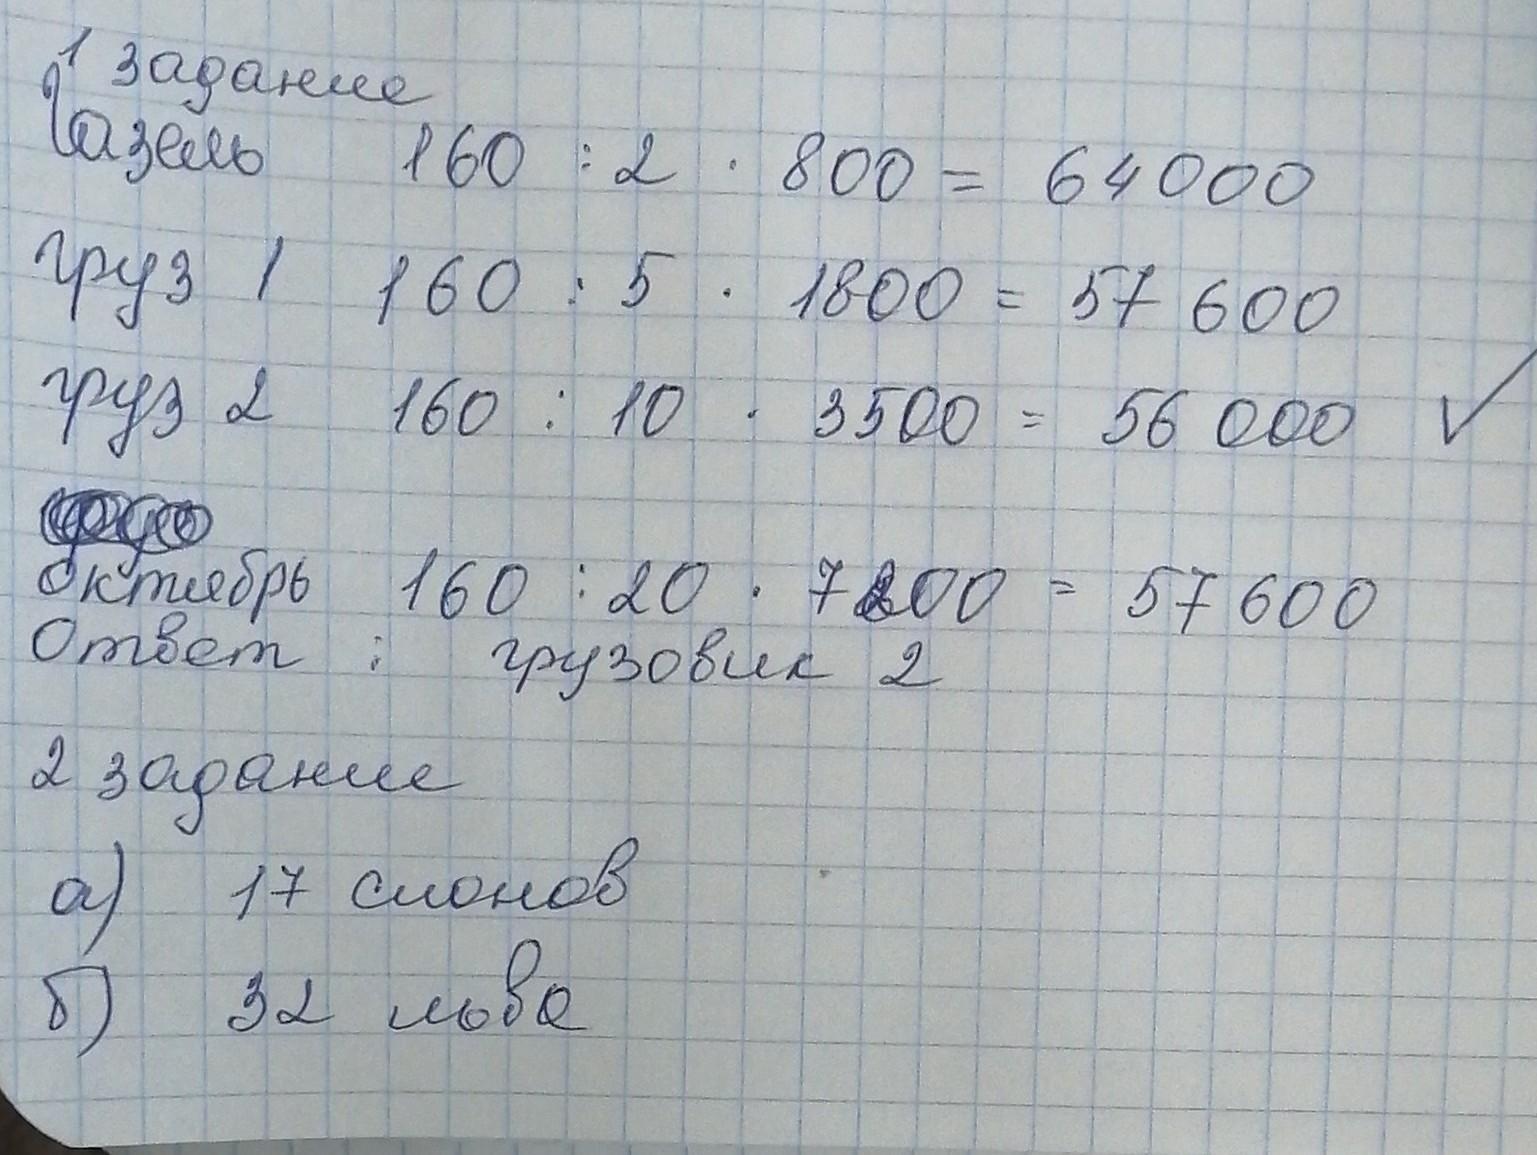 1 задание
Газель 160 : 2 · 800 = 64000
груз 1 160 : 5 · 1800 = 57 600
груз 2 160 : 10 · 3500 = 56 000 ✓
октябрь 160 : 20 · 7200 = 57 600
Ответ : грузовик 2
2 задание
а) 17 слонов
б) 32 льва